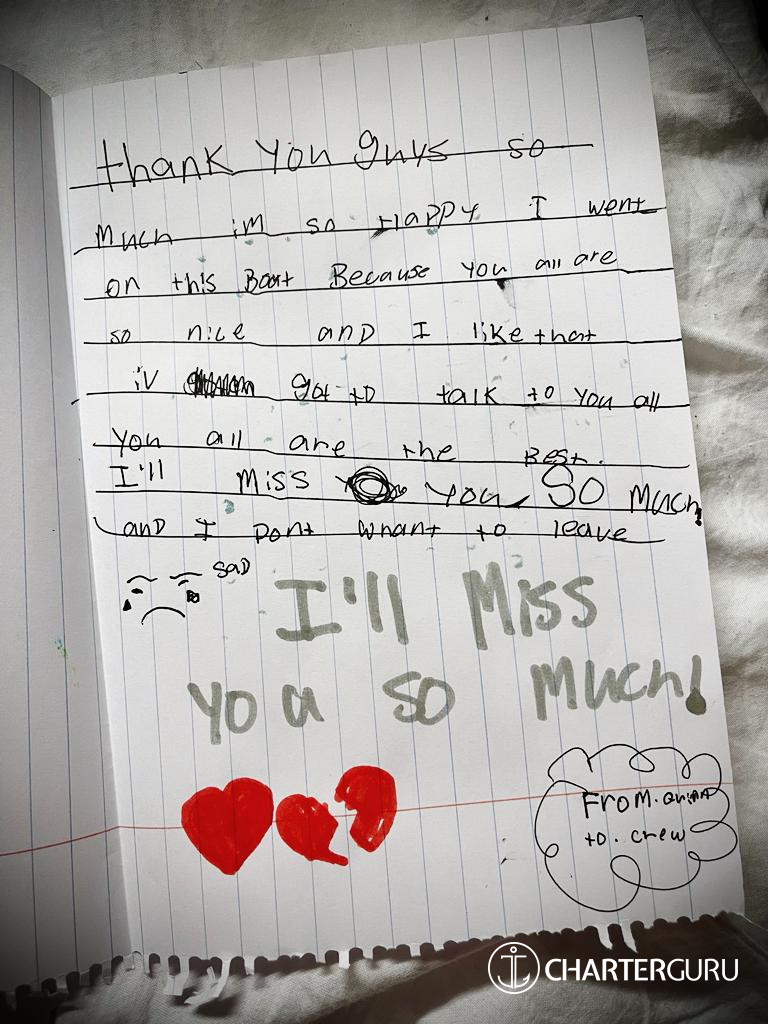 thank You guys so
Much im so HAPPY I went
on this Boat Because you all are
so nice anD I like that
iv got to talk to You all
You all are the Best.
I'll Miss you SO Much!
anD I Dont whant to leave
SAD
I'll Miss
you so Much!
FroM. Quinn
to. crew
CHARTERGURU